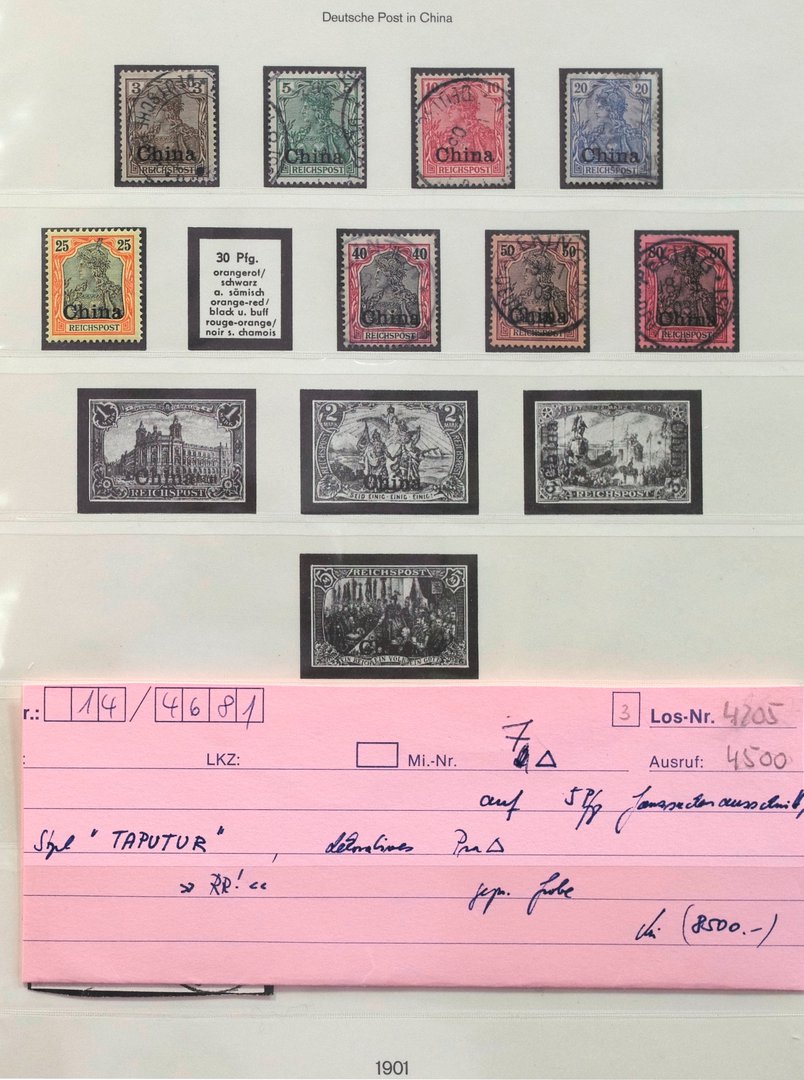 Deutsche Post in China
3 3 China REICHSPOST
5 5 China REICHSPOST
10 10 China REICHSPOST
20 20 China REICHSPOST
25 25 China REICHSPOST
30 Pfg.
orangerot/
schwarz
a. sämisch
orange-red/
black u. buff
rouge-orange/
noir s. chamois
40 40 China REICHSPOST
50 50 China REICHSPOST
80 80 China REICHSPOST
1 1 China REICHSPOST
2 2 China SEID EINIG-EINIG-EINIG!
3 China China 3 REICHSPOST
REICHSPOST
5 5
EIN REICH EIN VOLK EIN GOTT
r.: 14/4681 3 Los-Nr. 4205
: LKZ: Mi.-Nr. 7 △ Ausruf: 4500
auf 5 Pfg
"TAPUTUR", dekoratives △
» RR! «
gepr. Grobe
(8500.-)
1901